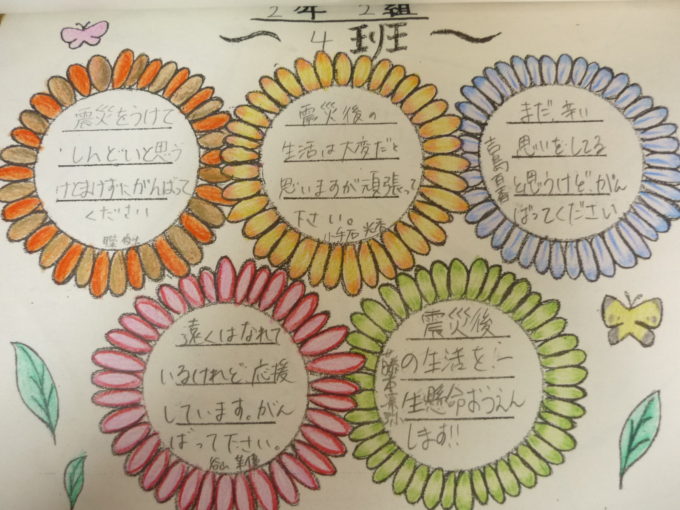 2年 2組
〜 4 班 〜
震災をうけて
しんどいと思う
けどまけずにがんばって
ください
震災後の
生活は大変だと
思いますが頑張って
下さい。
まだ、辛い
思いをしてる
と思うけど、がん
ばってください
遠くはなれて
いるけれど、応援
しています。がん
ばって下さい。
震災後
の生活を一
生懸命おうえん
します!!